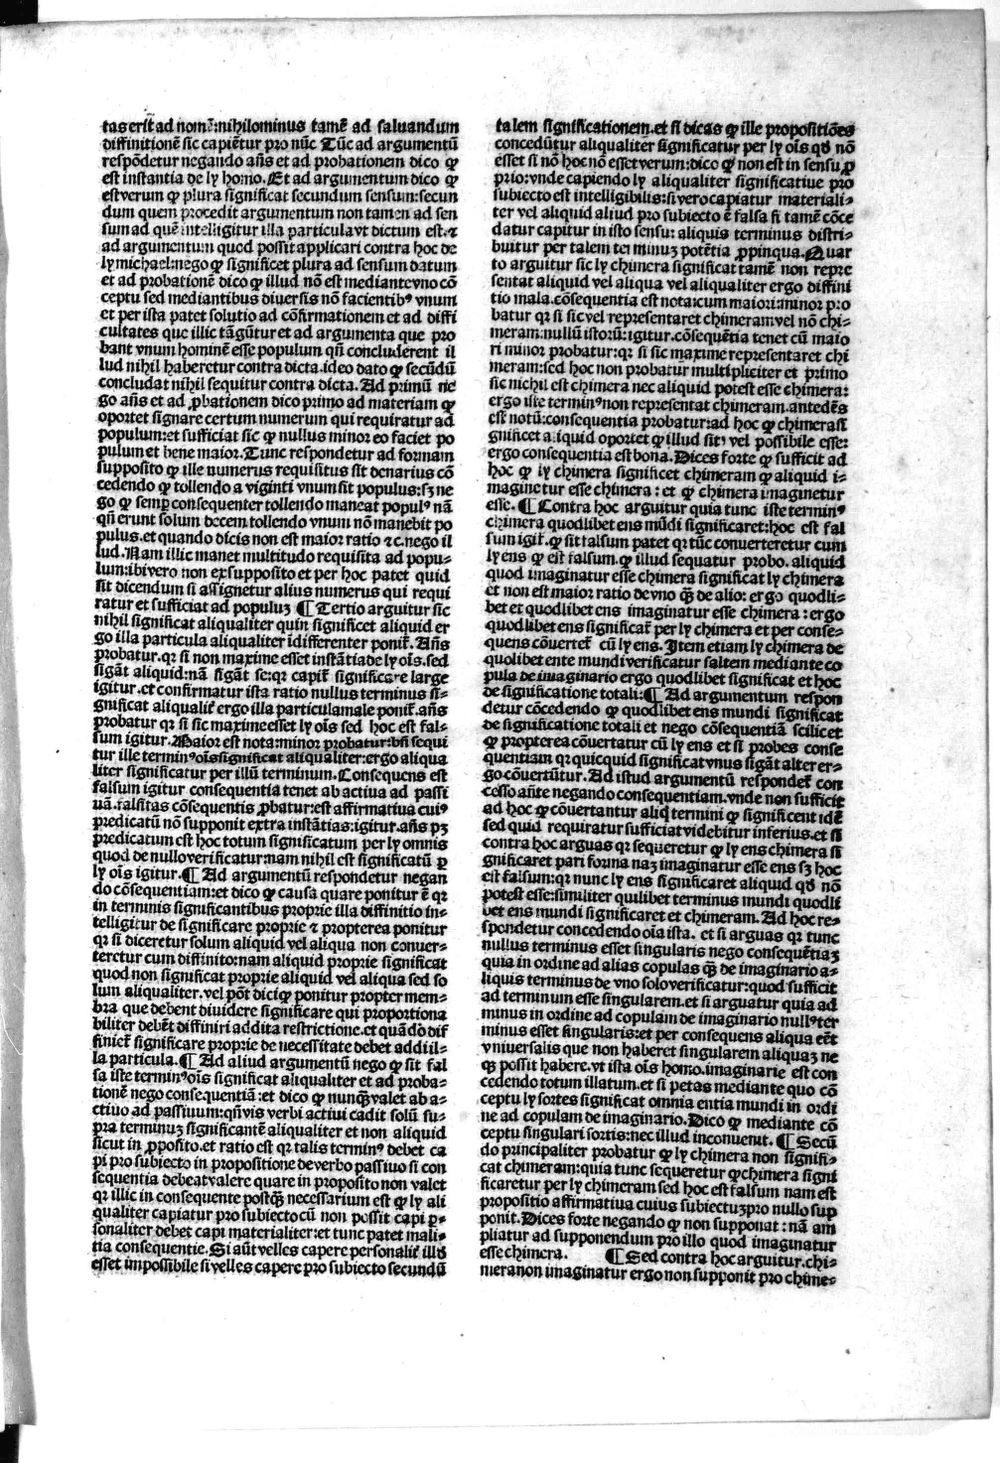 tas erit̃ ad nomẽ: nihilominus tamẽ ad saluandum
diffinitionẽ sic capiẽtur pro nũc Tũc ad argumentũ
respõdetur negando añs et ad probationem dico ꝙ
est instantia de ly homo. Et ad argumentum dico ꝙ
est verum ꝙ plura significat secundum sensum: secun
dum quem procedit argumentum non tamen ad sen
sum ad quẽ intelligitur illa particula vt dictum est. ⁊
ad argumentum quod possit applicari contra hoc de
ly michael: nego ꝙ significet plura ad sensum datum
et ad probationẽ dico ꝙ illud nõ est mediante vno cõ
ceptu sed mediantibus diuersis nõ facientibꝰ vnum
et per ista patet solutio ad cõfirmationem et ad diffi
cultates que illic tãgũtur et ad argumenta que pro
bant vnum hominẽ esse populum qñ concluderent il
lud nihil haberetur contra dicta. ideo dato ꝙ secũdũ
concludat nihil sequitur contra dicta. Ad primũ ne
go añs et ad ꝓbationem dico primo ad materiam ꝙ
oportet signare certum numerum qui requiratur ad
populum: et sufficiat sic ꝙ nullus minor eo faciet po
pulum et bene maior. Tunc respondetur ad formam
supposito ꝙ ille numerus requisitus sit denarius cõ
cedendo ꝙ tollendo a viginti vnum sit populus: sꝫ ne
go ꝙ semꝑ consequenter tollendo maneat populꝰ nã
qñ erunt solum decem tollendo vnum nõ manebit po
pulus. et quando dicis non est maior ratio ⁊c. nego il
lud. Nam illic manet multitudo requisita ad popu-
lum: ibi vero non ex supposito et per hoc patet quid
sit dicendum si assignetur alius numerus qui requi
ratur et sufficiat ad populuꝫ ¶ Tertio arguitur sic
nihil significat aliqualiter quin significet aliquid er
go illa particula aliqualiter ĩdifferenter ponit̃. Añs
probatur. qꝛ si non maxime esset instãtia de ly oĩs. sed
sigãt aliquid: nã sigãt se: qꝛ capit̃ significare large
igitur. et confirmatur ista ratio nullus terminus si-
gnificat aliqualit̃ ergo illa particula male ponit̃. añs
probatur qꝛ si sic maxime esset ly oĩs sed hoc est fal-
sum igitur. Maior est nota: minor probatur: bñ sequi
tur ille terminꝰ oĩs significat aliqualiter: ergo aliqua
liter significatur per illũ terminum. Consequens est
falsum igitur consequentia tenet ab actiua ad passi
uã. falsitas cõsequentis ꝓbatur: est affirmatiua cuiꝰ
predicatũ nõ supponit extra instãtias: igitur. añs pꝫ
predicatum est hoc totum significatum per ly omnis
quod de nullo verificatur: nam nihil est significatũ ꝑ
ly oĩs igitur. ¶ Ad argumentũ respondetur negan
do cõsequentiam: et dico ꝙ causa quare ponitur ẽ qꝛ
in terminis significantibus proprie illa diffinitio in-
telligitur de significare proprie ⁊ propterea ponitur
qꝛ si diceretur solum aliquid vel aliqua non conuer-
teretur cum diffinito: nam aliquid proprie significat
quod non significat proprie aliquid vel aliqua sed so
lum aliqualiter. vel põt dici ꝙ ponitur propter mem-
bra que debent diuidere significare qui proportiona
biliter debẽt diffiniri addita restrictione. et quãdo dif
finiet̃ significare proprie de necessitate debet addi il-
la particula. ¶ Ad aliud argumentũ nego ꝙ sit fal
sa iste terminꝰ oĩs significat aliqualiter et ad proba-
tionẽ nego consequentiã: et dico ꝙ nunꝙ̃ valet ab a-
ctiuo ad passiuum: qñ vis verbi actiui cadit solũ su-
pra terminuꝫ significantẽ aliqualiter et non aliquid
sicut in ꝓposito. et ratio est qꝛ talis terminꝰ debet ca
pi pro subiecto in propositione de verbo passiuo si con
sequentia debeat valere quare in proposito non valet
qꝛ illic in consequente postꝙ̃ necessarium est ꝙ ly ali
qualiter capiatur pro subiecto cũ non possit capi ꝑ-
sonaliter debet capi materialiter: et tunc patet mali-
tia consequentie. Si aũt velles capere personalit̃ illð
esset impossibile si velles capere pro subiecto secundũ
talem significationem. et si dicas ꝙ ille propositiões
concedũtur aliqualiter significatur per ly oĩs qð nõ
esset si nõ hoc nõ esset verum: dico ꝙ non est in sensu ꝓ
prio: vnde capiendo ly aliqualiter significatiue pro
subiecto est intelligibilis: si vero capiatur materiali-
ter vel aliquid aliud pro subiecto ẽ falsa si tamẽ cõce
datur capitur in isto sensu: aliquis terminus distri-
buitur per talem terminuꝫ potẽtia ꝓpinqua. Quar
to arguitur sic ly chimera significat tamẽ non repre
sentat aliquid vel aliqua vel aliqualiter ergo diffini
tio mala. cõsequentia est nota: cum maiori: minor pro
batur qꝛ si sic vel representaret chimeram: vel nõ chi-
meram: nullũ istorũ: igitur. cõsequẽtia tenet cũ maio
ri minor probatur: qꝛ si sic maxime representaret chi
meram: sed hoc non probatur multipliciter et primo
sic nichil est chimera nec aliquid potest esse chimera:
ergo iste terminꝰ non representat chimeram. antedẽs
est notũ: consequentia probatur: ad hoc ꝙ chimera si
gnificet aliquid oportet ꝙ illud sit: vel possibile esse:
ergo consequentia est bona. Dices forte ꝙ sufficit ad
hoc ꝙ ly chimera significet chimeram ꝙ aliquid i-
maginetur esse chimera: et ꝙ chimera imaginetur
esse. ¶ Contra hoc arguitur quia tunc iste terminꝰ
chimera quodlibet ens mũdi significaret: hoc est fal
sum igit̃. ꝙ sit falsum patet qꝛ tũc conuerteretur cum
ly ens ꝙ est falsum. ꝙ illud sequatur probo. aliquid
quod imaginatur esse chimera significat ly chimera
et non est maior ratio de vno ꝙ̃ de alio: ergo quodli-
bet et quodlibet ens imaginatur esse chimera: ergo
quodlibet ens significat̃ per ly chimera et per conse-
quens cõuertet̃ cũ ly ens. Item etiam ly chimera de
quolibet ente mundi verificatur saltem mediante co
pula de imaginario ergo quodlibet significat et hoc
de significatione totali: ¶ Ad argumentum respon
detur cõcedendo ꝙ quodlibet ens mundi significat
de significatione totali et nego cõsequentiã scilicet
ꝙ propterea cõuertatur cũ ly ens et si probes conse
quentiam qꝛ quicquid significat vnus sigãt alter er-
go cõuertũtur. Ad istud argumentũ respondet̃ con
cesso añte negando consequentiam. vnde non sufficit
ad hoc ꝙ cõuertantur aliqͥ termini ꝙ significent idẽ
sed quid requiratur sufficiat videbitur inferius. et si
contra hoc arguas qꝛ sequeretur ꝙ ly ens chimera si
gnificaret pari forma naꝫ imaginatur esse ens sꝫ hoc
est falsum: qꝛ nunc ly ens significaret aliquid qð nõ
potest esse: similiter quilibet terminus mundi quodli
bet ens mundi significaret et chimeram. Ad hoc re-
spondetur concedendo oĩa ista. et si arguas qꝛ tunc
nullus terminus esset singularis nego consequẽtiaꝫ
quia in ordine ad alias copulas ꝙ̃ de imaginario a-
liquis terminus de vno solo verificatur: quod sufficit
ad terminum esse singularem. et si arguatur quia ad
minus in ordine ad copulam de imaginario nullꝰ ter
minus esset singularis: et per consequens aliqua eẽt
vniuersalis que non haberet singularem aliquaꝫ ne
ꝙ possit habere. vt ista oĩs homo. imaginarie est con
cedendo totum illatum. et si petas mediante quo cõ
ceptu ly sortes significat omnia entia mundi in ordi
ne ad copulam de imaginario. Dico ꝙ mediante cõ
ceptu singulari sortis: nec illud inconuenit. ¶ Secũ
do principaliter probatur ꝙ ly chimera non signifi-
cat chimeram: quia tunc sequeretur ꝙ chimera signi
ficaretur per ly chimeram sed hoc est falsum nam est
propositio affirmatiua cuius subiectuꝫ pro nullo sup
ponit. Dices forte negando ꝙ non supponat: nã am
pliatur ad supponendum pro illo quod imaginatur
esse chimera. ¶ Sed contra hoc arguitur. chi-
mera non imaginatur ergo non supponit pro chime-